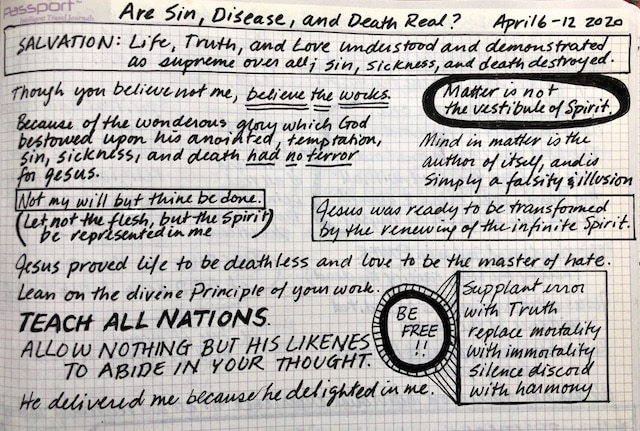 Passport
Intelligent Travel Journals
Are Sin, Disease, and Death Real? April 6-12 2020
SALVATION: Life, Truth, and Love understood and demonstrated
as supreme over all; sin, sickness, and death destroyed.
Though you believe not me, believe the works.
Because of the wonderous glory which God
bestowed upon his anointed, temptation,
sin, sickness, and death had no terror
for Jesus.
Matter is not
the vestibule of Spirit.
Mind in matter is the
author of itself, and is
simply a falsity & illusion
Not my will but thine be done.
(Let not the flesh, but the Spirit
be represented in me)
Jesus was ready to be transformed
by the renewing of the infinite Spirit.
Jesus proved life to be deathless and love to be the master of hate.
Lean on the divine Principle of your work.
TEACH ALL NATIONS.
ALLOW NOTHING BUT HIS LIKENES
TO ABIDE IN YOUR THOUGHT.
He delivered me because he delighted in me.
BE
FREE
!!
Supplant error
with Truth
replace mortality
with immortality
silence discord
with harmony